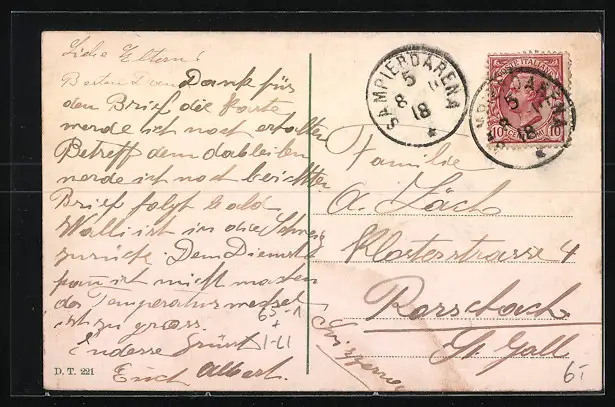 Liebe Eltern!
Besten Dank Dank für
den Brief, die Karte
werde ich noch erhalten
Betreff dem dableiben
werde ich noch berichten
Brief folgt bald
Walli ist in die Schweiz
zurück. Dem Dienst
kann ich nicht machen
der Temperaturwechsel
ist zu gross.
Indesse Grüsst
Euch Albert.
D. T. 221
65-1
+
1-61
SAMPIERDARENA
5
8
18
POSTE ITALIANE
10 CENTESIMI 10
SAMPIERDARENA
5
18
Familie
A. Zäch
Klosterstrasse 4
Rorschach
St Gall
Svizzera
6.-